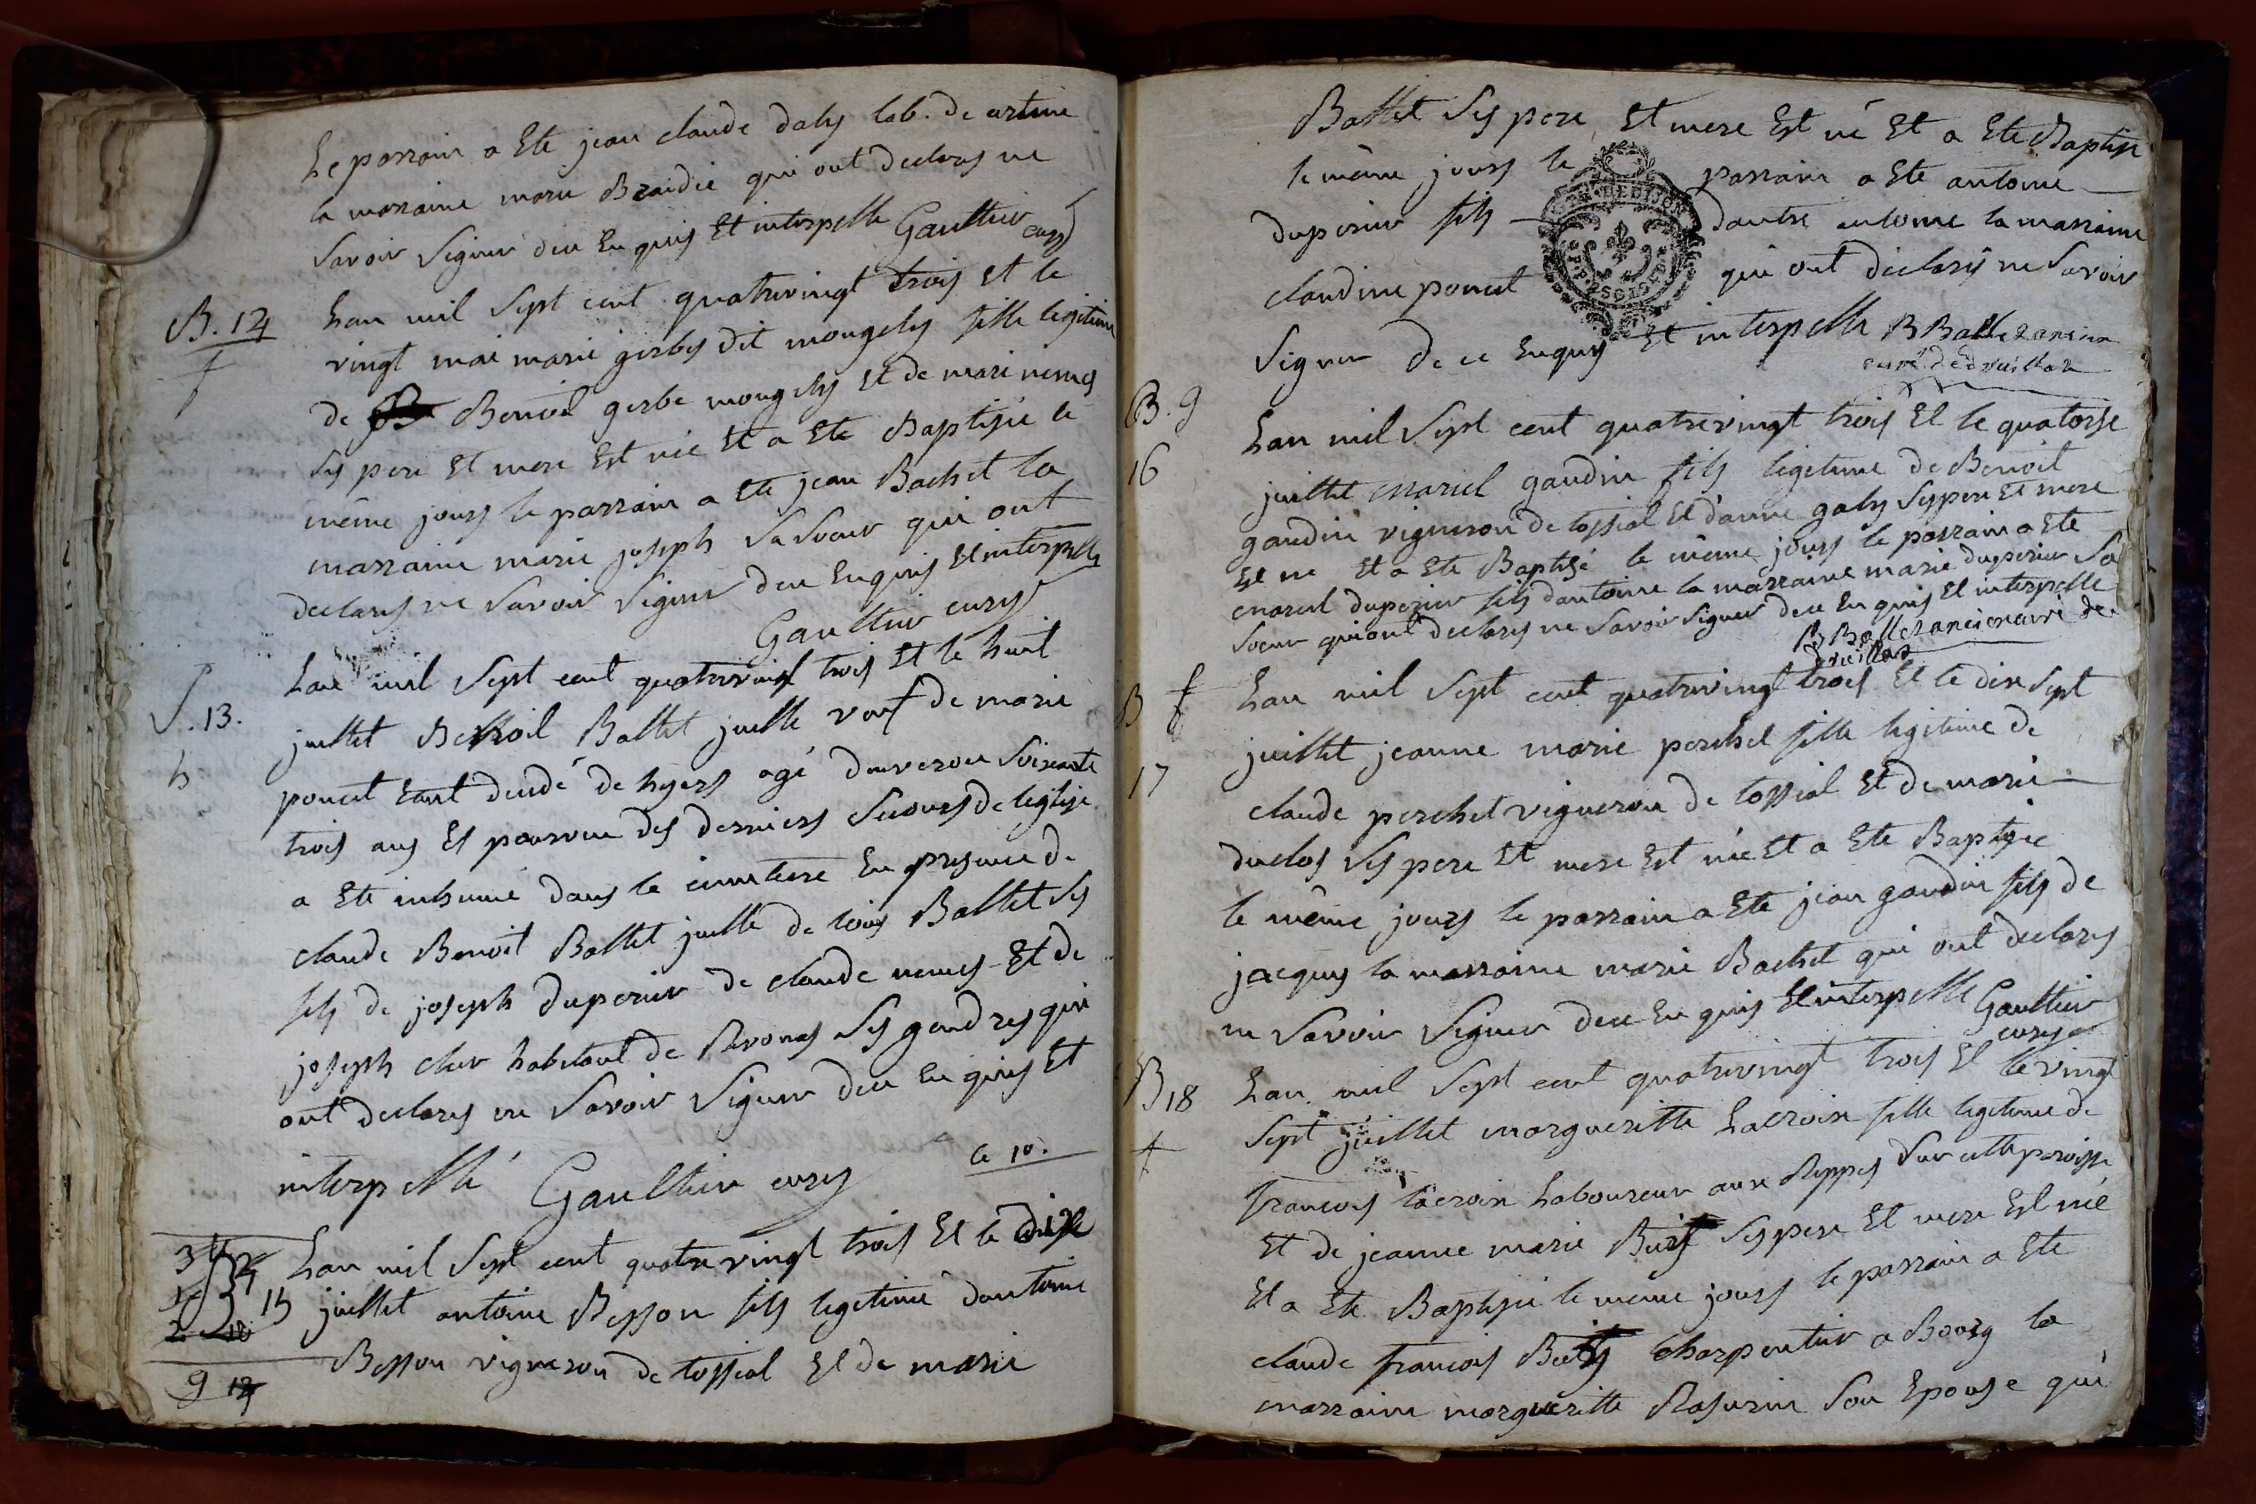 Le parrain a Ete jean claude daly lab. de artine
la marraine marie Braidie qui ont declares ne
savoir signer dece Enquis Et interpelle Gaultier curé
B. 12
f
Lan mil sept cent quatrevingt trois Et le
vingt mai marie gerbes dit mongely fille legitime
de Benoit gerbe mongely Et de marie nemes
ses pere Et mere Est née Et a Ete Baptisée le
même jours le parrain a Ete jean Bachet la
marraine marie joseph sa soeur qui ont
declares ne savoir signer dece Enquis Et interpelle
Gaultier cures
S. 13.
h
Lan mil sept cent quatrevingt trois Et le huit
juillet Benoit Ballet juille veuf de marie
poncet tant dendé de hyers agé denveron soixante
trois ans Et pourveu des derniers secours de leglise
a Ete inhumé dans le cimetiere En presence de
claude Benoit Ballet juille de loüis Ballet ses
fils de joseph duperier de claude nemes Et de
joseph cler habitant de Revonas ses gendres qui
ont declares ne savoir signer dece Enquis Et
interpellé Gaultier cures
le 10.
15
Lan mil sept cent quatrevingt trois Et le dix
juillet antoine Besson fils legitime dantoine
Besson vigneron de tossial Et de marie
9 12
Ballet ses pere Et mere Est né Et a Ete Baptise
le même jours le parrain a Ete antoine
duperier fils dautre antoine la marraine
claudine poncet qui ont declarés ne savoir
signer de ce Enquis Et interpelle B Ballet ancien
curé de druillat
B. g
16
Lan mil sept cent quatrevingt trois Et le quatorse
juillet marcel gaudin fils legitime de Benoit
gaudin vigneron de tossial Et danne galy ses pere Et mere
Est né Et a Ete Baptisé le même jours le parrain a Ete
marcel duperier fils dantoine la marraine marie duperier sa
soeur qui ont declares ne savoir signer dece Enquis Et interpelle
B Ballet ancien curé de
druillat
B f
17
Lan mil sept cent quatrevingt trois Et le dix sept
juillet jeanne marie perchet fille legitime de
claude perchet vigneron de tossial Et de marie
duclos ses pere Et mere Est née Et a Ete Baptisée
le même jours le parrain a Ete jean gaudin fils de
jacques la marraine marie Bachet qui ont declares
ne savoir signer dece Enquis Et interpelle Gaultier
cures
B 18
f
Lan mil sept cent quatrevingt trois Et le vingt
sept juillet margueritte Lacroix fille legitime de
francois lacroix Laboureur aux Rippes sur cette paroisse
Et de jeanne marie ses pere Et mere Est née
Et a Ete Baptisée le même jours le parrain a Ete
claude francois charpentier a Bourg la
marraine margueritte Rasurin son Epouse qui